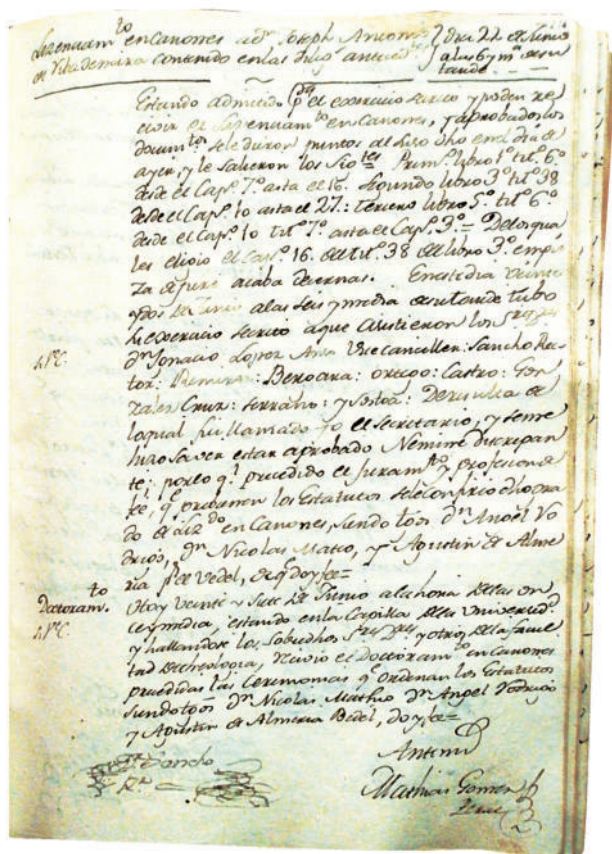 Lizenciam.to en Canones a d.n Joseph Antonio
de Villademira contenido en las dilig.s anteced.s
dia 22 de Junio
a las 6 y m.a de su
tarde.
Estando admitido p.a el exercicio secreto y poder re
civir el Lizenciam.to en Canones, y aprobados los
docum.tos se le dieron puntos al suso dho en el dia de
ayer, y le salieron los sig.tes Prim.o libro 1.o tit.o 6.o
desde el Cap.o 7.o asta el 16. Segundo libro 3.o tit.o 38
desde el Cap.o 10 asta el 27.: tercero libro 5.o tit.o 6.o
desde el Cap.o 10 tit.o 7.o asta el Cap.o 3.o = De los qua
les elijio el Cap.o 16. del tit.o 38 del libro 3.o empi
za de jure acaba
En este dia veinte
y dos de Junio a las seis y media de su tarde tubo
su exercicio secreto a que asistieron los S.res D.res
d.n Ignacio Lopez Vice canciller: Sancho Rec
tor: Ramirez: Berocara: Castro: Gon
zalez Cruz: Serrano: y De resulta de
lo qual fui llamado yo el Secretario, y se me
hizo saver estar aprobado Nemine discrepan
te: por lo q.l precedido el juram.to y profesion de
fee, q.e previenen los Estatutos se le confirio el grado
de Liz.do en Canones, siendo t.gos d.n Angel Ro
drigo, d.n Nicolas Matio, y Agustin de Alme
ria Vedel, de q.e doy fee=
Doctoram.to
Oy veinte y siete de Junio a la hora de las on
ce y media, estando en la Capilla de la Universid.d
y hallandose los Sobredhos S.res D.res y otros de la facul
tad de theologia, recivio el Doctoram.to en Canones
precedidas las Ceremonias q.e ordenan los Estatutos
siendo t.gos d.n Nicolas Mathio d.n Angel Rodrigo
y Agustin de Almeria Bedel, doy fee=
Sancho
R.or
Antemi
Mathias Gomez